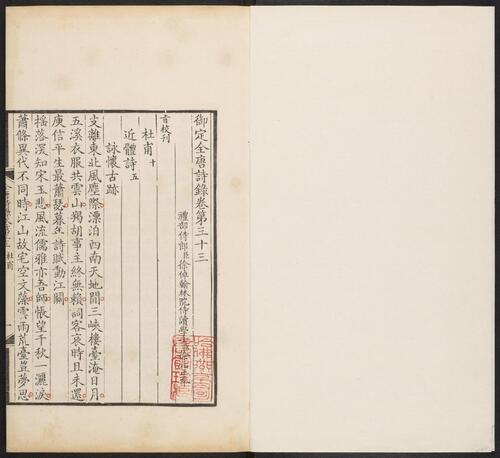 御定全唐詩錄卷第三十三
禮部侍郎臣徐倬翰林院侍讀學
旨校刊
杜甫十
近體詩五
詠懷古跡
支離東北風塵際漂泊西南天地間三峽樓臺淹日月
五溪衣服共雲山羯胡事主終無賴詞客哀時且未還
庾信平生最蕭瑟暮年詩賦動江關
搖落深知宋玉悲風流儒雅亦吾師悵望千秋一灑淚
蕭條異代不同時江山故宅空文藻雲雨荒臺豈夢思
杜甫
一